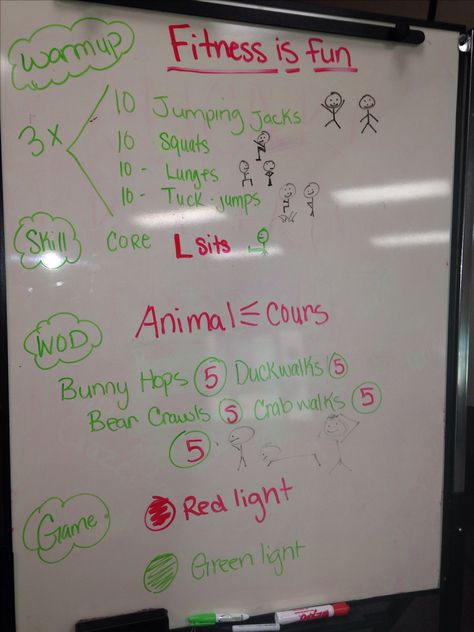 Warmup
Fitness is fun
3x
10 Jumping Jacks
10 Squats
10 - Lunges
10 - Tuck-jumps
Skill
CORE L sits
Animal cours
WOD
Bunny Hops 5 Duckwalks 5
Bear Crawls 5 Crab walks 5
5
Game
Red light
Green light
EXPO